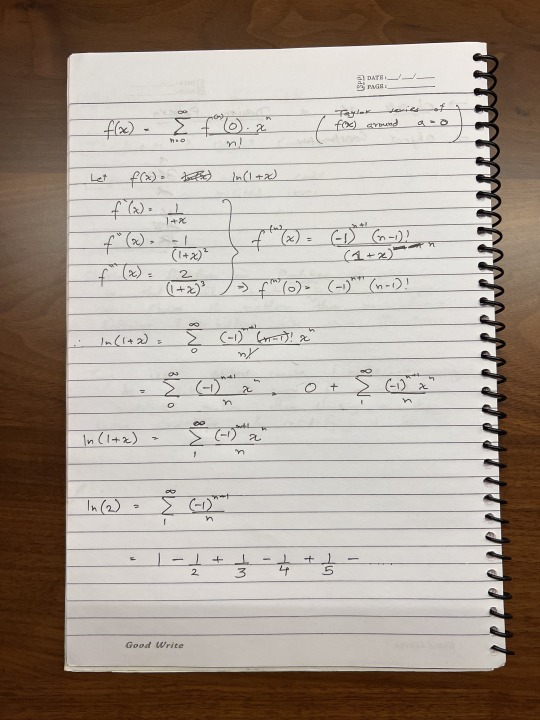 DATE: __/__/__
PAGE:
f(x) = ∞ Σ n=0 f⁽ⁿ⁾(0) . xⁿ / n! ( Taylor series of f(x) around a = 0 )
Let f(x) = ln(1+x)
f'(x) = 1/(1+x)
f''(x) = -1/(1+x)² } f⁽ⁿ⁾(x) = (-1)ⁿ⁺¹ (n-1)! / (1+x)ⁿ
f'''(x) = 2/(1+x)³ ⇒ f⁽ⁿ⁾(0) = (-1)ⁿ⁺¹ (n-1)!
∴ ln(1+x) = ∞ Σ 0 (-1)ⁿ⁺¹ (n-1)! xⁿ / n!
= ∞ Σ 0 (-1)ⁿ⁺¹ xⁿ / n = 0 + ∞ Σ 1 (-1)ⁿ⁺¹ xⁿ / n
ln(1+x) = ∞ Σ 1 (-1)ⁿ⁺¹ xⁿ / n
ln(2) = ∞ Σ 1 (-1)ⁿ⁺¹ / n
= 1 - 1/2 + 1/3 - 1/4 + 1/5 - .....
Good Write